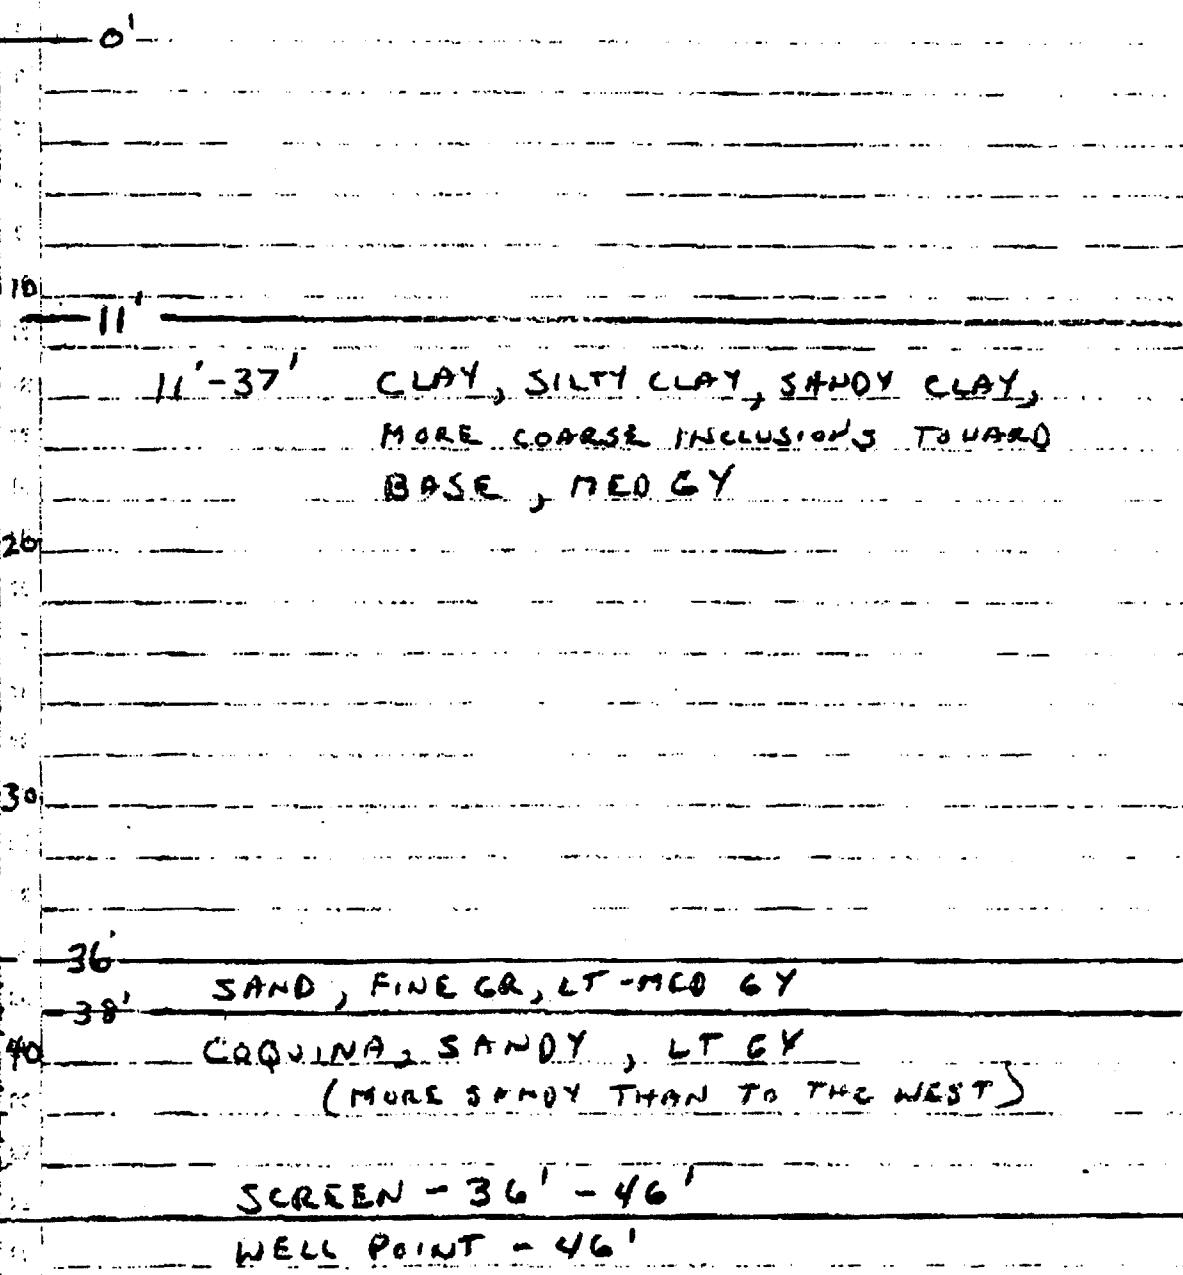 0'
10
11'
11'-37' CLAY, SILTY CLAY, SANDY CLAY,
MORE COARSE INCLUSIONS TOWARD
BASE, MED GY
20
30
36'
SAND, FINE GR, LT-MED GY
38'
40 COQUINA, SANDY, LT GY
(MORE SANDY THAN TO THE WEST)
SCREEN - 36' - 46'
WELL POINT - 46'